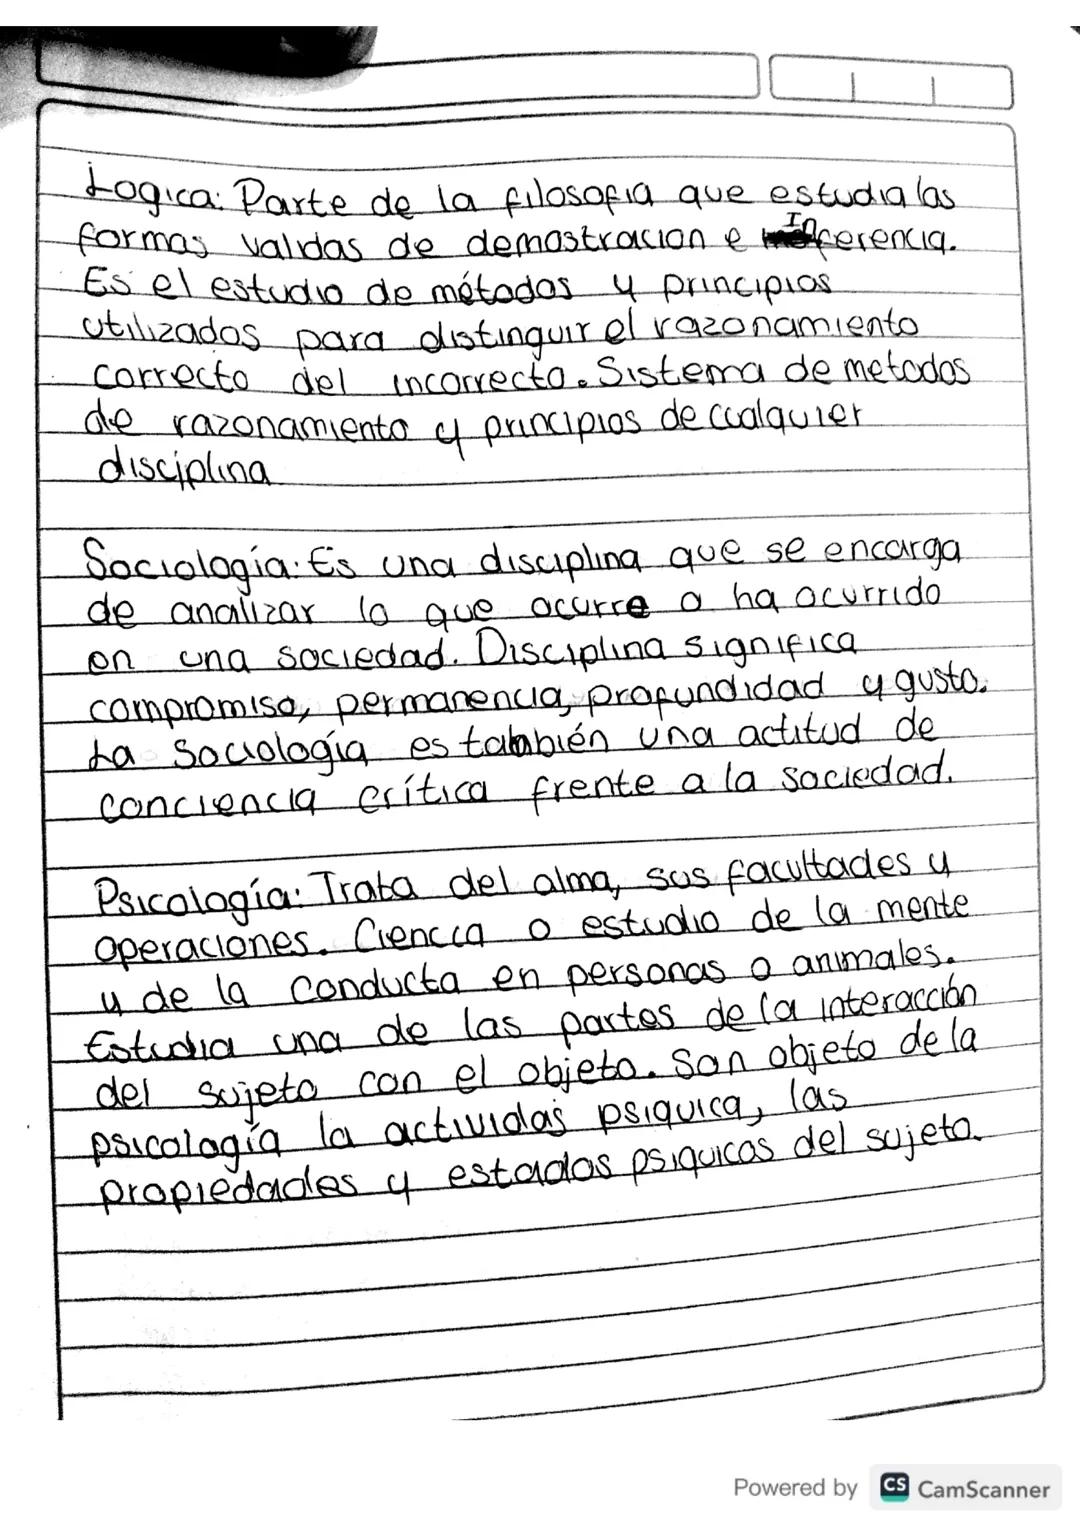 Logica: Parte de la filosofia que estudia las
formas validas de demostracion e Inferencia.
Es el estudio de métodos y principios
utilizados para distinguir el razonamiento
correcto del incorrecto. Sistema de metodos
de razonamiento y principios de cualquier
disciplina
Sociología: Es una disciplina que se encarga
de analizar lo que ocurre o ha ocurrido
en una sociedad. Disciplina significa
compromiso, permanencia, profundidad y gusto.
La sociología es también una actitud de
conciencia crítica frente a la sociedad.
Psicología: Trata del alma, sus facultades y
operaciones. Ciencia o estudio de la mente
y de la conducta en personas o animales.
Estudia una de las partes de la interacción
del sujeto con el objeto. Son objeto de la
psicología la actividas psiquica, las
propiedades y estados psiquicos del sujeto.
Powered by CS CamScanner